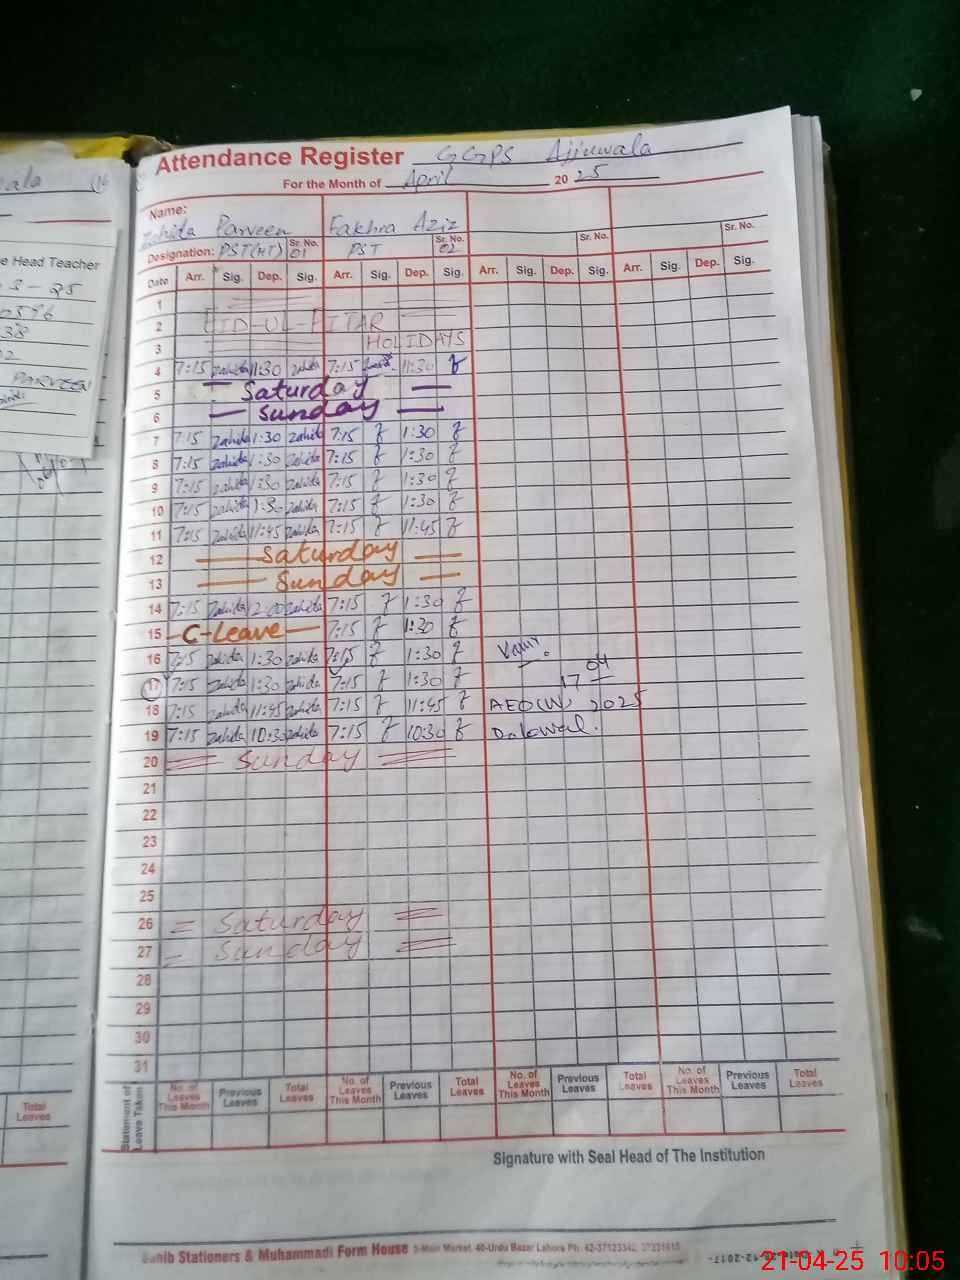 Attendance Register GGPS Ajjuwala
For the Month of April 2025
Name:
Zahida Parveen Fakhra Aziz
Designation: PST(HT) Sr. No. 01 PST Sr. No. 02 Sr. No. Sr. No.
Date Arr. Sig. Dep. Sig. Arr. Sig. Dep. Sig. Arr. Sig. Dep. Sig. Arr. Sig. Dep. Sig.
1
2 EID-UL-FITAR
3 HOLIDAYS
4 7:15 Zahida 11:30 Zahida 7:15 11:30
5 Saturday
6 Sunday
7 7:15 Zahida 1:30 Zahida 7:15 1:30
8 7:15 Zahida 1:30 Zahida 7:15 1:30
9 7:15 Zahida 1:30 Zahida 7:15 1:30
10 7:15 Zahida 1:30 Zahida 7:15 1:30
11 7:15 Zahida 11:45 Zahida 7:15 11:45
12 Saturday
13 Sunday
14 7:15 Zahida 2:00 Zahida 7:15 1:30
15 C-Leave 7:15 1:30
16 7:15 Zahida 1:30 Zahida 7:15 1:30
17 7:15 Zahida 1:30 Zahida 7:15 1:30 17 04
18 7:15 Zahida 11:45 Zahida 7:15 11:45 AEO(W) 2025
19 7:15 Zahida 10:30 Zahida 7:15 10:30
20 Sunday
21
22
23
24
25
26 Saturday
27 Sunday
28
29
30
31
Statement of Leave Taken
No. of Leaves This Month Previous Leaves Total Leaves No. of Leaves This Month Previous Leaves Total Leaves No. of Leaves This Month Previous Leaves Total Leaves No. of Leaves This Month Previous Leaves Total Leaves
Signature with Seal Head of The Institution
Sahib Stationers & Muhammadi Form House 3-Main Market, 40-Urdu Bazar Lahore Ph. 42-37123342,
e Head Teacher
PARVEEN
Total Leaves
21-04-25 10:05